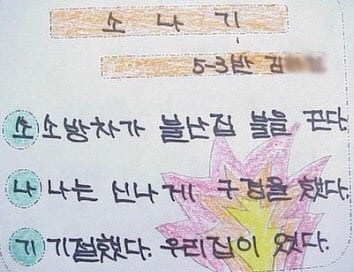 소 나 기
5-3반 김
소 소방차가 불난집 불을 끈다.
나 나는 신나게 구경을 했다.
기 기절했다. 우리집이 였다.